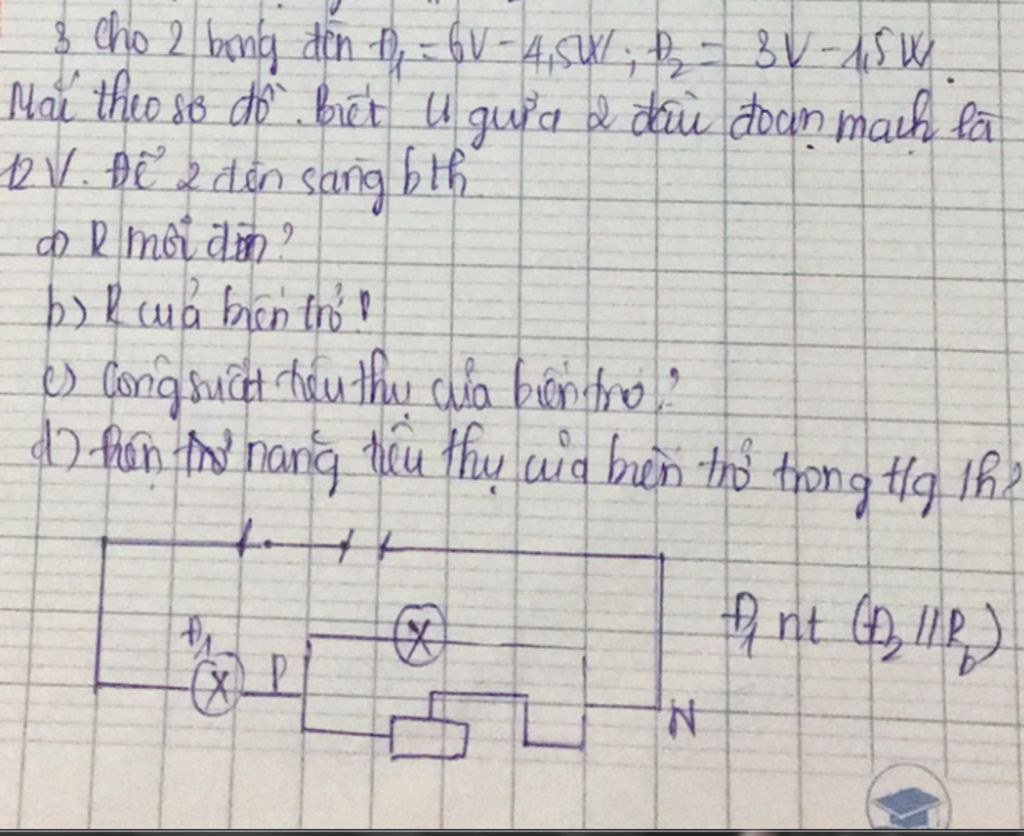 3 Cho 2 bóng đèn Đ1 = 6V - 4,5W ; Đ2 = 3V - 1,5W.
Mắc theo sơ đồ. Biết U giữa 2 đầu đoạn mạch là
12V. Để 2 đèn sáng bth
a) R mỗi đèn?
b) R của biến trở?
c) Công suất tiêu thụ của biến trở?
d) Điện trở năng tiêu thụ của biến trở trong t/g 1h?
Đ1 P
X
X
Đ1 nt (Đ2 // Rb)
N